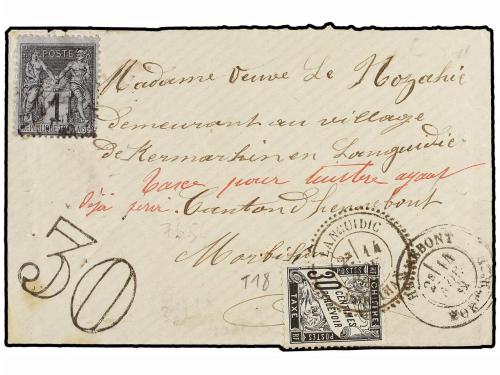 POSTE
1
Madame Veuve Le Nozahic
demeurant au village
de Kermarhin en Languidic
Taxe pour timbre ayant
Déjà servi Canton d'hennebont
Morbihan
30
T18
LANGUIDIC
14
HENNEBONT
14
CHIFFRE
POSTES
30
CENTIMES
A PERCEVOIR
TAXE
RF